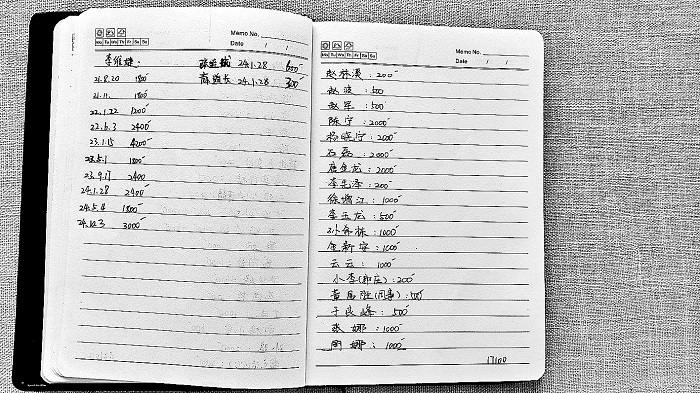 Memo No.
Mo Tu We Th Fr Sa Su
Date / /
李维雄:
21.8.20 1800
21.11. 1800
22.1.22 1200
22.6.3 2400
23.1.15 4200
23.5.1 1800
23.9.17 2400
24.1.28 2400
24.5.4 1800
24.12.3 3000
24.1.28 600
24.1.28 300
Memo No.
Mo Tu We Th Fr Sa Su
Date / /
赵林溪:200
赵波:500
赵军:500
陈宁:2000
杨晓宁:2000
石磊:2000
唐金龙:2000
李忠泽:200
徐增江:1000
李玉龙:500
孙希栋:1000
新安:1000
云云:1000
小李():200
黄居胜():500
于良峰:500
张娜:1000
周娜:1000
17100